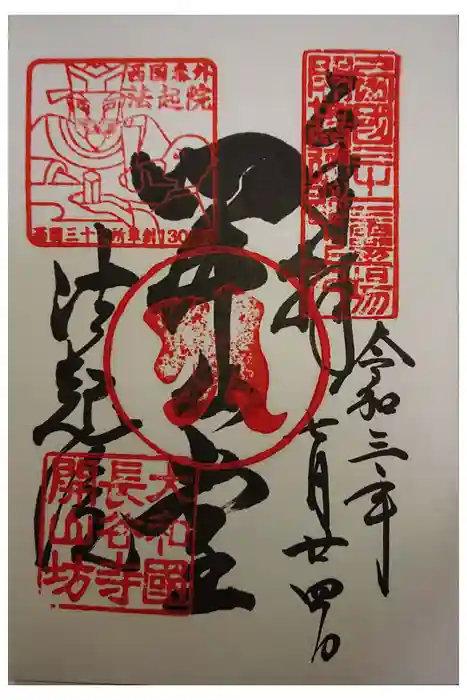 西國三十三霊場
拝
令和三年
七月廿四日
開山堂
西国番外
法起院
西国三十三所草創1300年
法起院
大和國
長谷寺
開山坊